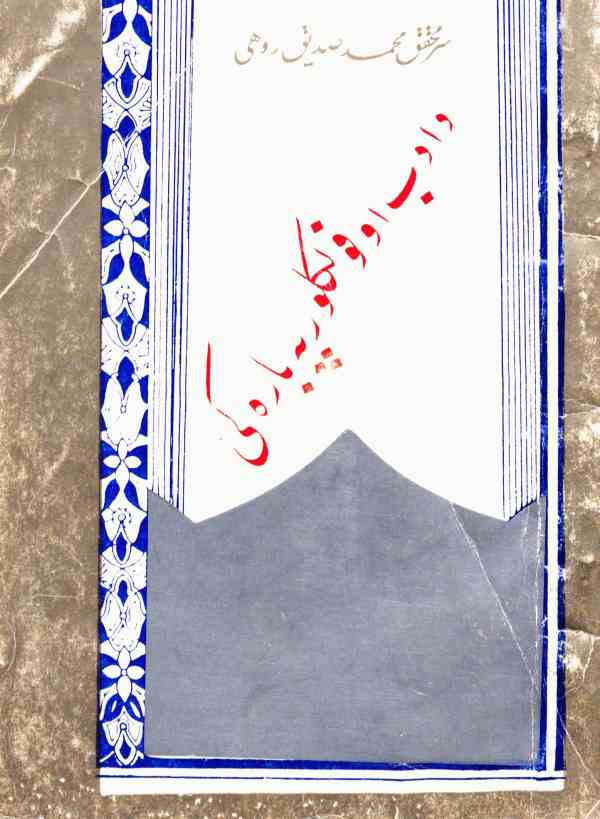 سرمحقق محمد صدیق روهی
د ادب او فولکلور په باره کی